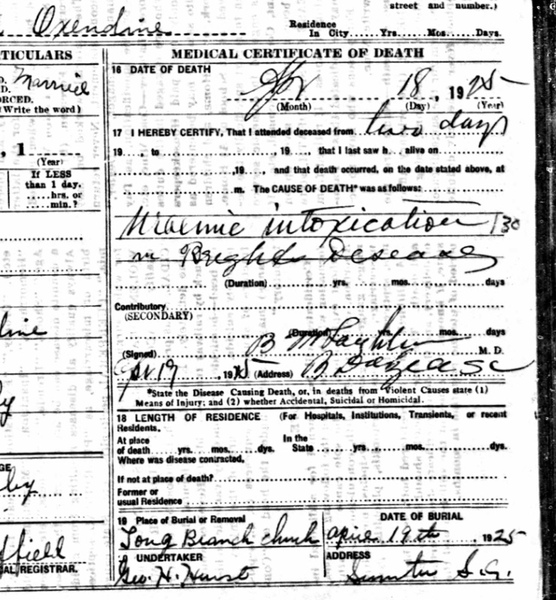 street and number.)
Oxendine
Residence
In City Yrs. Mos. Days.
TICULARS
MEDICAL CERTIFICATE OF DEATH
16 DATE OF DEATH
Married
ORCED.
Write the word)
Apr 18 1925
(Month) (Day) (Year)
17 I HEREBY CERTIFY, That I attended deceased from two days
, 1
(Year)
19 , to 19 , that I last saw h alive on
, 19 , and that death occurred, on the date stated above, at
m. The CAUSE OF DEATH* was as follows:
If LESS
than 1 day.
hrs. or
min.?
Uraemic intoxication 130
in Brights Disease
(Duration) yrs. mos. days
Contributory
(SECONDARY)
(Duration) yrs. mos. days
(Signed) B McLaughlin M. D.
Apr 19 1925 (Address)
*State the Disease Causing Death, or, in deaths from Violent Causes state (1)
Means of Injury; and (2) whether Accidental, Suicidal or Homicidal.
18 LENGTH OF RESIDENCE (For Hospitals, Institutions, Transients, or recent
Residents.
At place
of death yrs. mos. dys.
In the
State yrs. mos. dys.
Where was disease contracted,
If not at place of death?
Former or
usual Residence
19 Place of Burial or Removal
DATE OF BURIAL
Long Branch church
April 19th 1925
20 UNDERTAKER
ADDRESS
Geo. H. Hurst
Sumter S.C.
field
AL REGISTRAR.